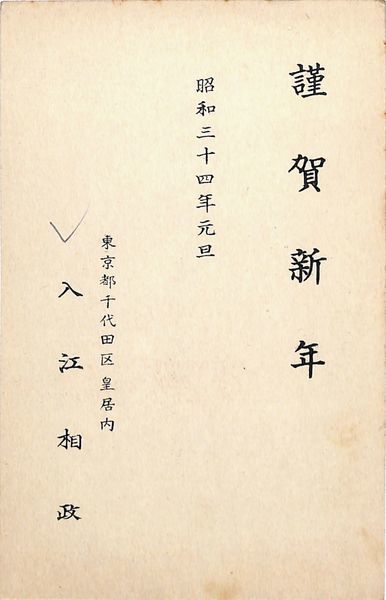 謹賀新年
昭和三十四年元旦
東京都千代田区皇居内
入江相政